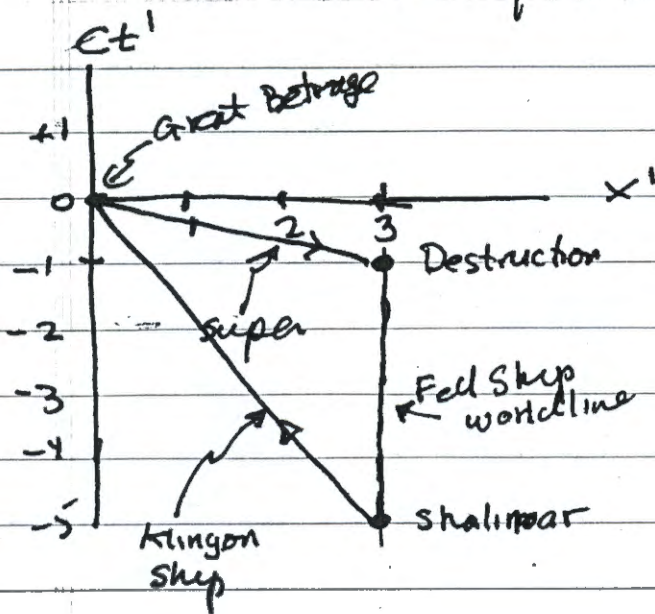 ct'
Great Betrayal
+1
0
x'
2
3
-1
Destruction
-2
super
-3
Fed Ship
worldline
-4
-5
Shalimar
Klingon
Ship